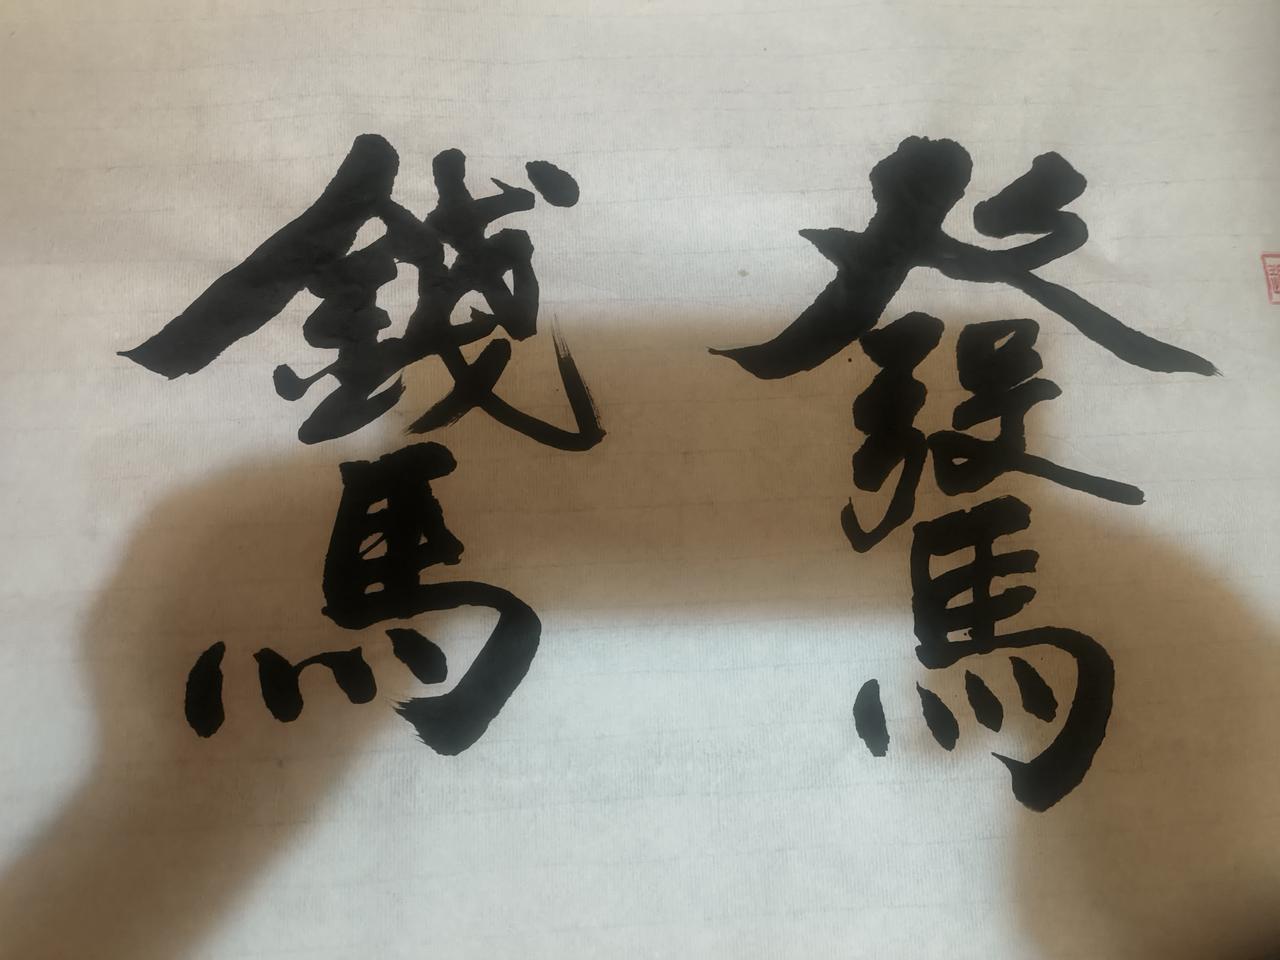 發馬
錢馬